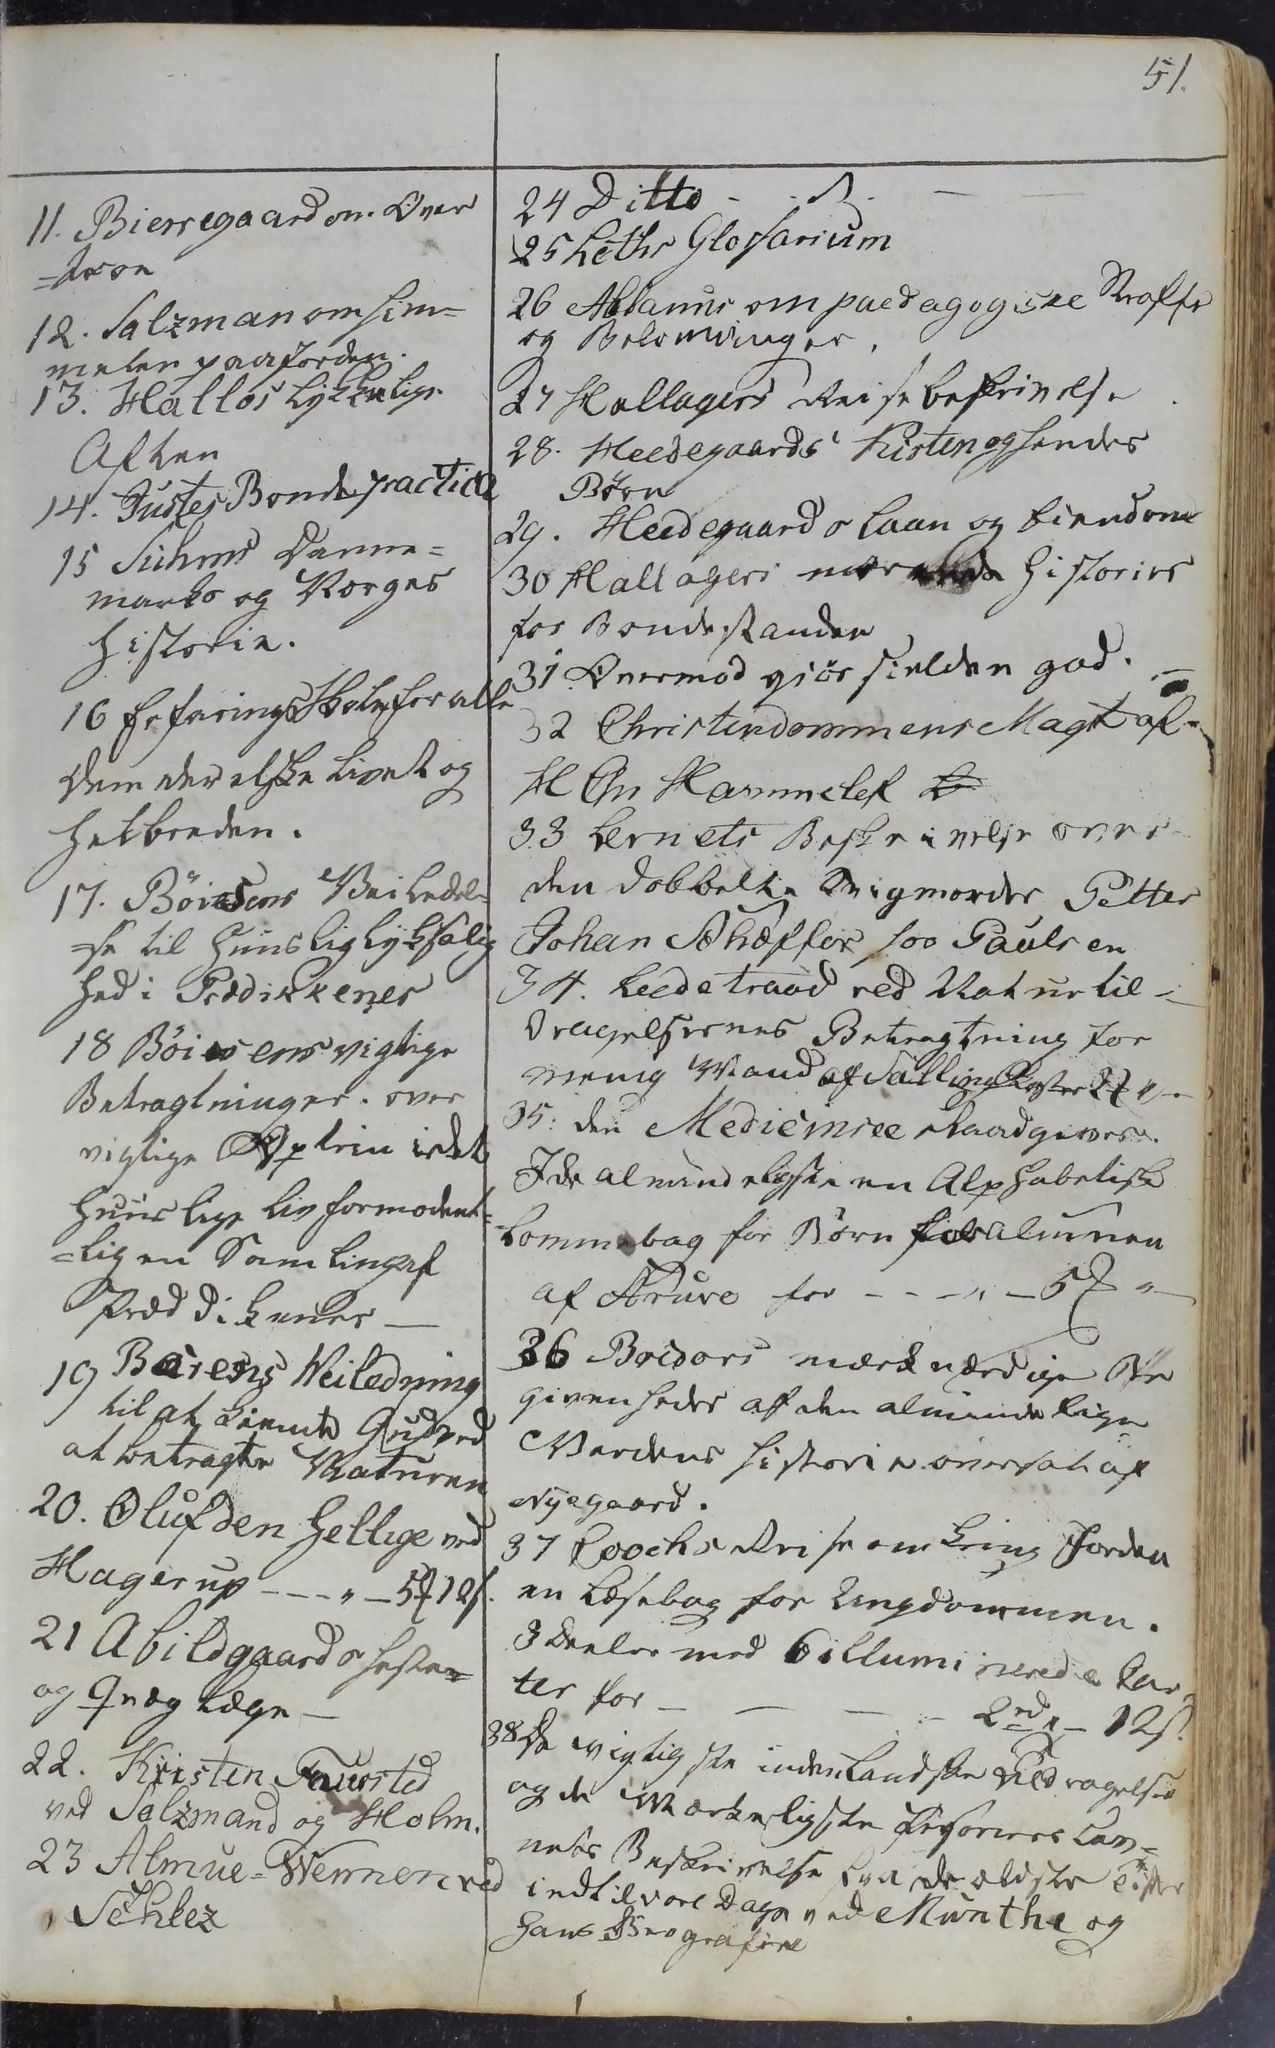 51.
11. Bierregaard om Over
=troe
12. Salzman om Him=
melen paa Jorden.
13. Hallos Lykkelige
Aften
14. Justes Bondepractica
15 Suhms Danne=
marks og Norges
Historie.
16 Erfarings Skole for alle
Dem der elske Livet og
Helbreden.
17. Böisens Veiledel=
se til Huuslig Lyksalig
hed i Prædikkener
18 Böisens vigtige
Betragtninger over
vigtige Optrin i det
Huuslige Liv formodent=
=lig en Samling af
Præddikener —
19 Barens Veiledning
til at kiende Gud ved
at betragte Naturen
20. Oluf den Hellige ved
Hagerup - - - " - 5 12 s.
21 Abildgaards Heste=
og Qvæg Læge —
22. Kristen Fuursted
ved Salzmand og Holm.
23 Almue=Vennen ved
Schlez
24 Ditto - -
25 Leths Glossarium
26 om paedagogiske Straffe
og Belønninger.
27 Hallagers Reisebeskrivelse
28. Heedegaards Kirsten og hendes
Børn
29. Heedegaards Laan og Eiendom
30 Hallagers Historier
for Bondestanden
31 Overmod giør sielden god. —
32 Christendommens Magt af
H Chr Hammelef
33 Lernets Beskrivelse over
den dobbelte Snigmorder Petter
Johan for Paulsen
34. Leedetraad ved Naturtil=
dragelsernes Betragtning for
menig Mand af Salling koster 2
35. den Medicinske Raadgiver.
I de almindeligste en Alphabetisk
Lommebog for Børn almuen
af Struve for - - - " - 5 "
36 Bredors mærkværdige Be
givenheder af den almindelige
Verdens Historie oversat af
Nyegaard.
37 Coocks Reise omkring Jorden
en Læsebog for Ungdommen.
3 Deeler med 6 illuminerede Kar=
ter for - - - - 2 rd " - 12 s.
38 De vigtigste indenlandske Tildragelser
og de Mærkeligste Personers Lev=
nets Beskrivelse fra de ældste Tider
indtil vore Dage ved Munthe og
hans Biografier